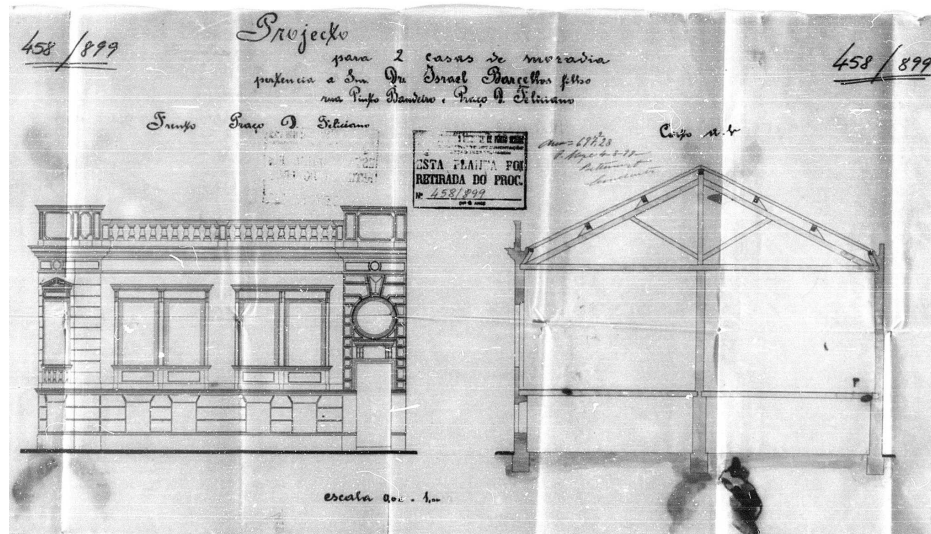 458/899
Projecto
para 2 casas de moradia
pertencia a Snr. Dr Israel Barcellos filho
rua Pinto Bandeira e Praça D. Feliciano
458/899
Frente Praça D Feliciano
ESTA PLANTA FOI
RETIRADA DO PROC.
Nº 458/899
Corte a.b
escala